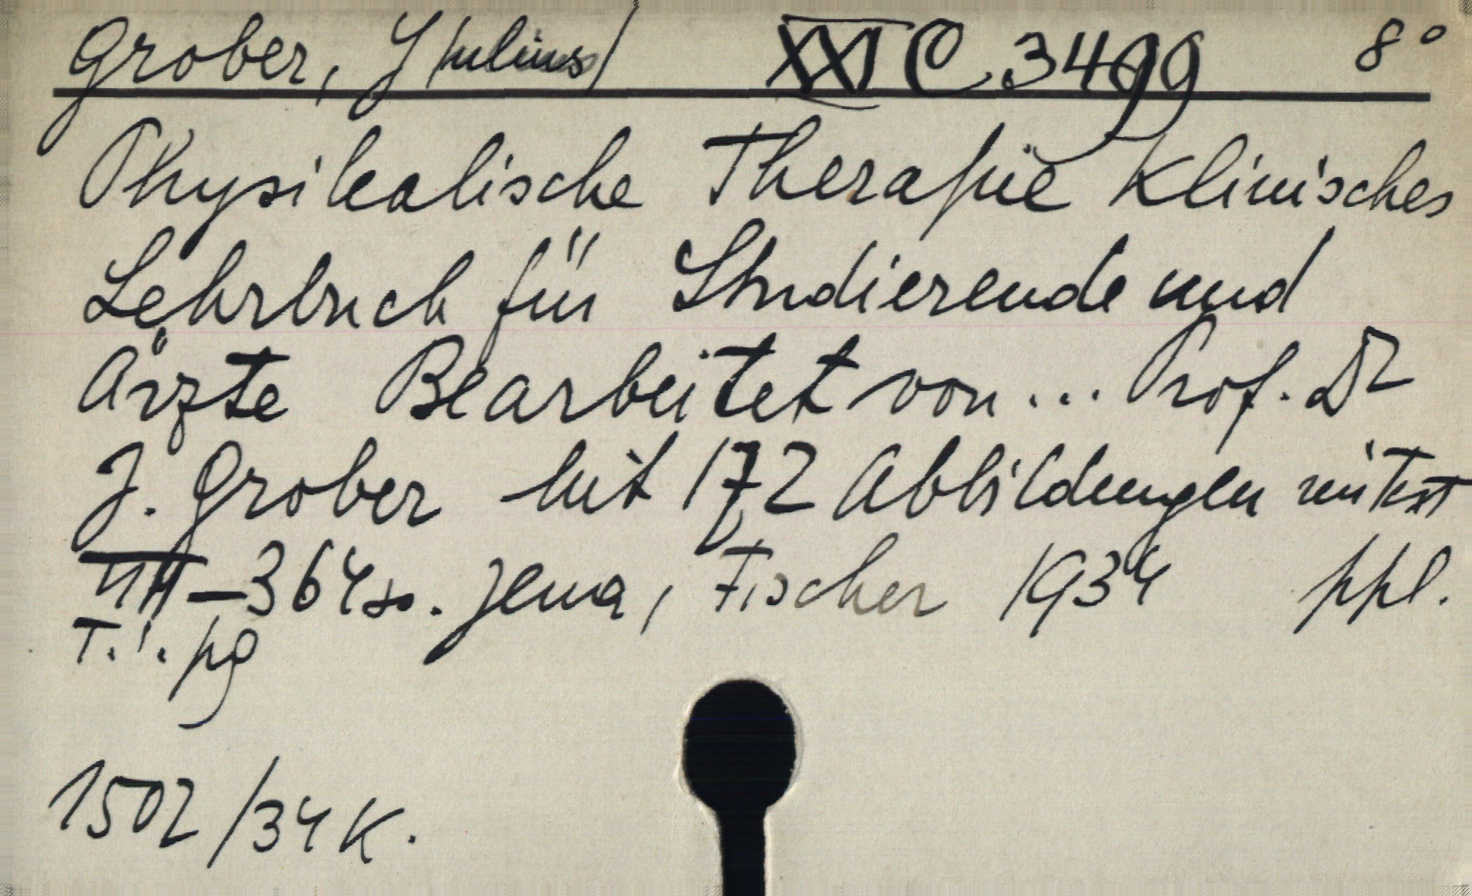 Grober, J/ulius/ XXI C 3499 8°
Physikalische Therapie Klinisches
Lehrbuch für Studierende und
Ärzte Bearbeitet von... Prof. Dr
J. Grober Mit 172 Abbildungen im Text
VII–364 s. Jena, Fischer 1934 ppl.
T. i. pg
1502/34 K.